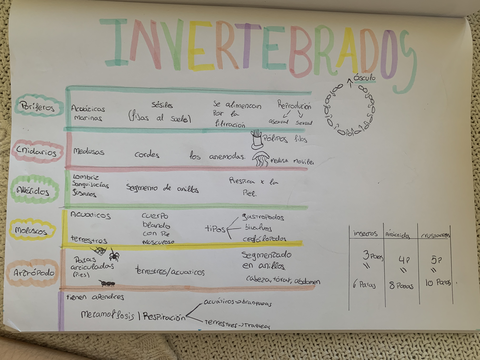 INVERTEBRADOS
ósculo
Poríferos
Acuáticos
marinas
Sésiles
(fijas al suelo)
Se alimentan
por la
filtración
Reproducción
asexual sexual
Cnidarios
Medusas
los anemonas
Pólipos fijos
medusa móviles
Anélidos
Lombriz
Sanguijuelas
Segmento de anillos
Respira x la
Piel
Moluscos
Acuáticos
terrestres
cuerpo
blando
con pie
musculoso
tipos
gasterópodos
bivalvos
cefalópodos
Artrópodo
Patas
articuladas
(pies)
terrestres/acuáticos
Segmentado
en anillos
cabeza, tórax, abdomen
tienen apéndices
Metamorfosis | Respiración
acuáticos→branquias
terrestres→traqueas
insectos arácnidos crustáceos
3 Pares 4 P 5 P
" " "
6 Patas 8 Patas 10 Patas